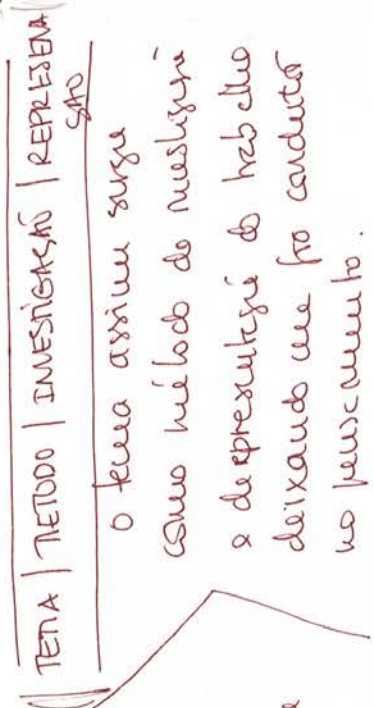 TEMA | METODO | INVESTIGAÇÃO | REPRESENTA
ÇÃO
O tema assim surge
como método de investigação
e de representação do trabalho
deixando um fio condutor
no pensamento.